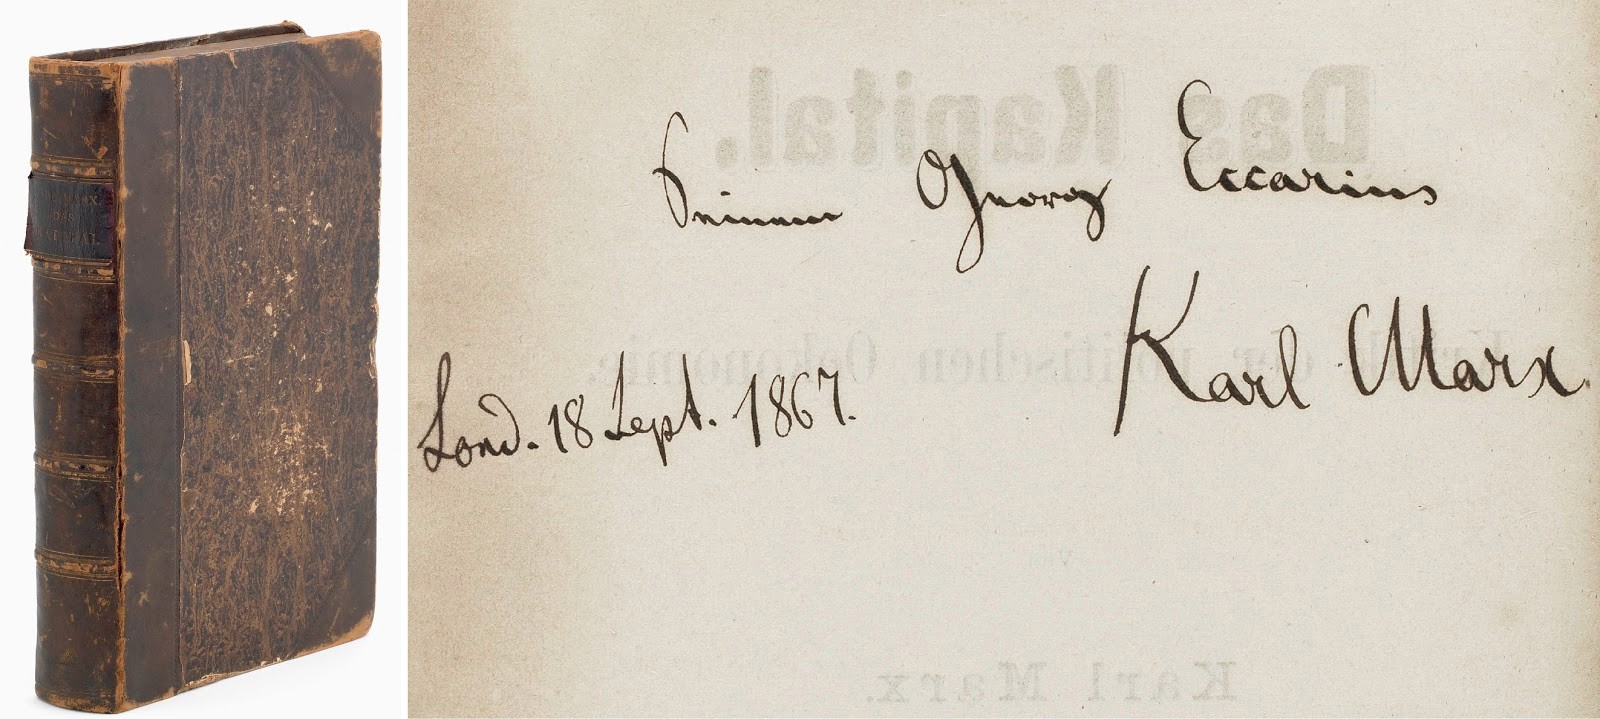 MARX.
DAS
KAPITAL.
Das Kapital.
Seinem Georg Eccarius
Kritik der politischen Oekonomie.
Karl Marx.
Lond. 18 Sept. 1867.
von
Karl Marx.